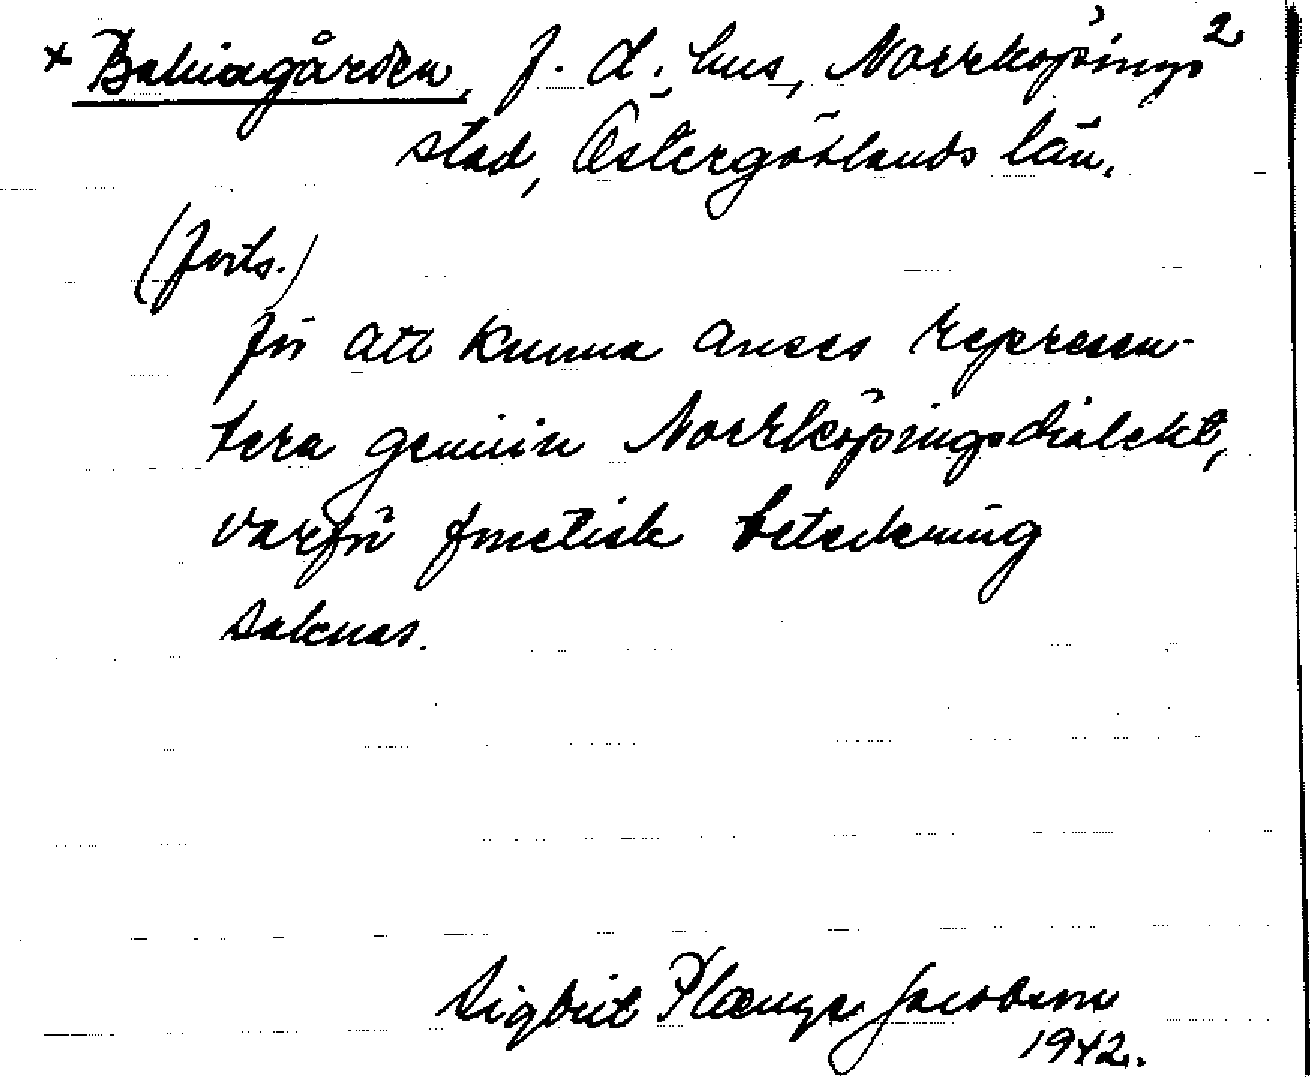 × Bahiagården, f. d. hus, Norrköpings 2
stad, Östergötlands län.
(forts.)
för att kunna anses represen-
tera genuin Norrköpingsdialekt,
varför fonetisk beteckning
saknas.
Sigbrit Plænge Jacobson
1942.